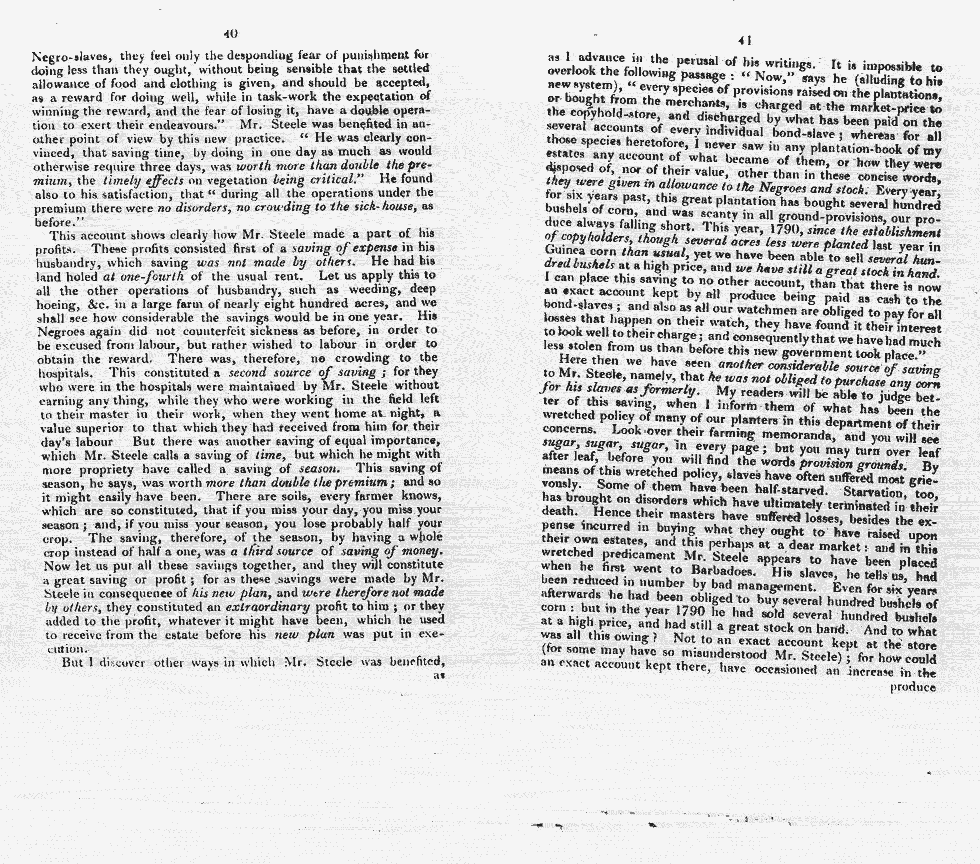 40
Negro-slaves, they feel only the desponding fear of punishment for
doing less than they ought, without being sensible that the settled
allowance of food and clothing is given, and should be accepted,
as a reward for doing well, while in task-work the expectation of
winning the reward, and the fear of losing it, have a double opera-
tion to exert their endeavours.” Mr. Steele was benefited in an-
other point of view by this new practice. “ He was clearly con-
vinced, that saving time, by doing in one day as much as would
otherwise require three days, was worth more than double the pre-
mium, the timely effects on vegetation being critical.” He found
also to his satisfaction, that “ during all the operations under the
premium there were no disorders, no crowding to the sick-house, as
before.”
This account shows clearly how Mr. Steele made a part of his
profits. These profits consisted first of a saving of expense in his
husbandry, which saving was not made by others. He had his
land holed at one-fourth of the usual rent. Let us apply this to
all the other operations of husbandry, such as weeding, deep
hoeing, &c. in a large farm of nearly eight hundred acres, and we
shall see how considerable the savings would be in one year. His
Negroes again did not counterfeit sickness as before, in order to
be excused from labour, but rather wished to labour in order to
obtain the reward. There was, therefore, no crowding to the
hospitals. This constituted a second source of saving ; for they
who were in the hospitals were maintained by Mr. Steele without
earning any thing, while they who were working in the field left
to their master in their work, when they went home at night, a
value superior to that which they had received from him for their
day's labour But there was another saving of equal importance,
which Mr. Steele calls a saving of time, but which he might with
more propriety have called a saving of season. This saving of
season, he says, was worth more than double the premium ; and so
it might easily have been. There are soils, every farmer knows,
which are so constituted, that if you miss your day, you miss your
season ; and, if you miss your season, you lose probably half your
crop. The saving, therefore, of the season, by having a whole
crop instead of half a one, was a third source of saving of money.
Now let us put all these savings together, and they will constitute
a great saving or profit ; for as these savings were made by Mr.
Steele in consequence of his new plan, and were therefore not made
by others, they constituted an extraordinary profit to him ; or they
added to the profit, whatever it might have been, which he used
to receive from the estate before his new plan was put in exe-
cution.
But I discover other ways in which Mr. Steele was benefited,
as
41
as I advance in the perusal of his writings. It is impossible to
overlook the following passage : “ Now,” says he (alluding to his
new system), “ every species of provisions raised on the plantations,
or bought from the merchants, is charged at the market-price to
the copyhold-store, and discharged by what has been paid on the
several accounts of every individual bond-slave ; whereas for all
those species heretofore, I never saw in any plantation-book of my
estates any account of what became of them, or how they were
disposed of, nor of their value, other than in these concise words,
they were given in allowance to the Negroes and stock. Every year,
for six years past, this great plantation has bought several hundred
bushels of corn, and was scanty in all ground-provisions, our pro-
duce always falling short. This year, 1790, since the establishment
of copyholders, though several acres less were planted last year in
Guinea corn than usual, yet we have been able to sell several hun-
dred bushels at a high price, and we have still a great stock in hand.
I can place this saving to no other account, than that there is now
an exact account kept by all produce being paid as cash to the
bond-slaves ; and also as all our watchmen are obliged to pay for all
losses that happen on their watch, they have found it their interest
to look well to their charge ; and consequently that we have had much
less stolen from us than before this new government took place.”
Here then we have seen another considerable source of saving
to Mr. Steele, namely, that he was not obliged to purchase any corn
for his slaves as formerly. My readers will be able to judge bet-
ter of this saving, when I inform them of what has been the
wretched policy of many of our planters in this department of their
concerns. Look over their farming memoranda, and you will see
sugar, sugar, sugar, in every page ; but you may turn over leaf
after leaf, before you will find the words provision grounds. By
means of this wretched policy, slaves have often suffered most grie-
vously. Some of them have been half-starved. Starvation, too,
has brought on disorders which have ultimately terminated in their
death. Hence their masters have suffered losses, besides the ex-
pense incurred in buying what they ought to have raised upon
their own estates, and this perhaps at a dear market : and in this
wretched predicament Mr. Steele appears to have been placed
when he first went to Barbadoes. His slaves, he tells us, had
been reduced in number by bad management. Even for six years
afterwards he had been obliged to buy several hundred bushels of
corn : but in the year 1790 he had sold several hundred bushels
at a high price, and had still a great stock on hand. And to what
was all this owing ? Not to an exact account kept at the store
(for some may have so misunderstood Mr. Steele) ; for how could
an exact account kept there, have occasioned an increase in the
produce